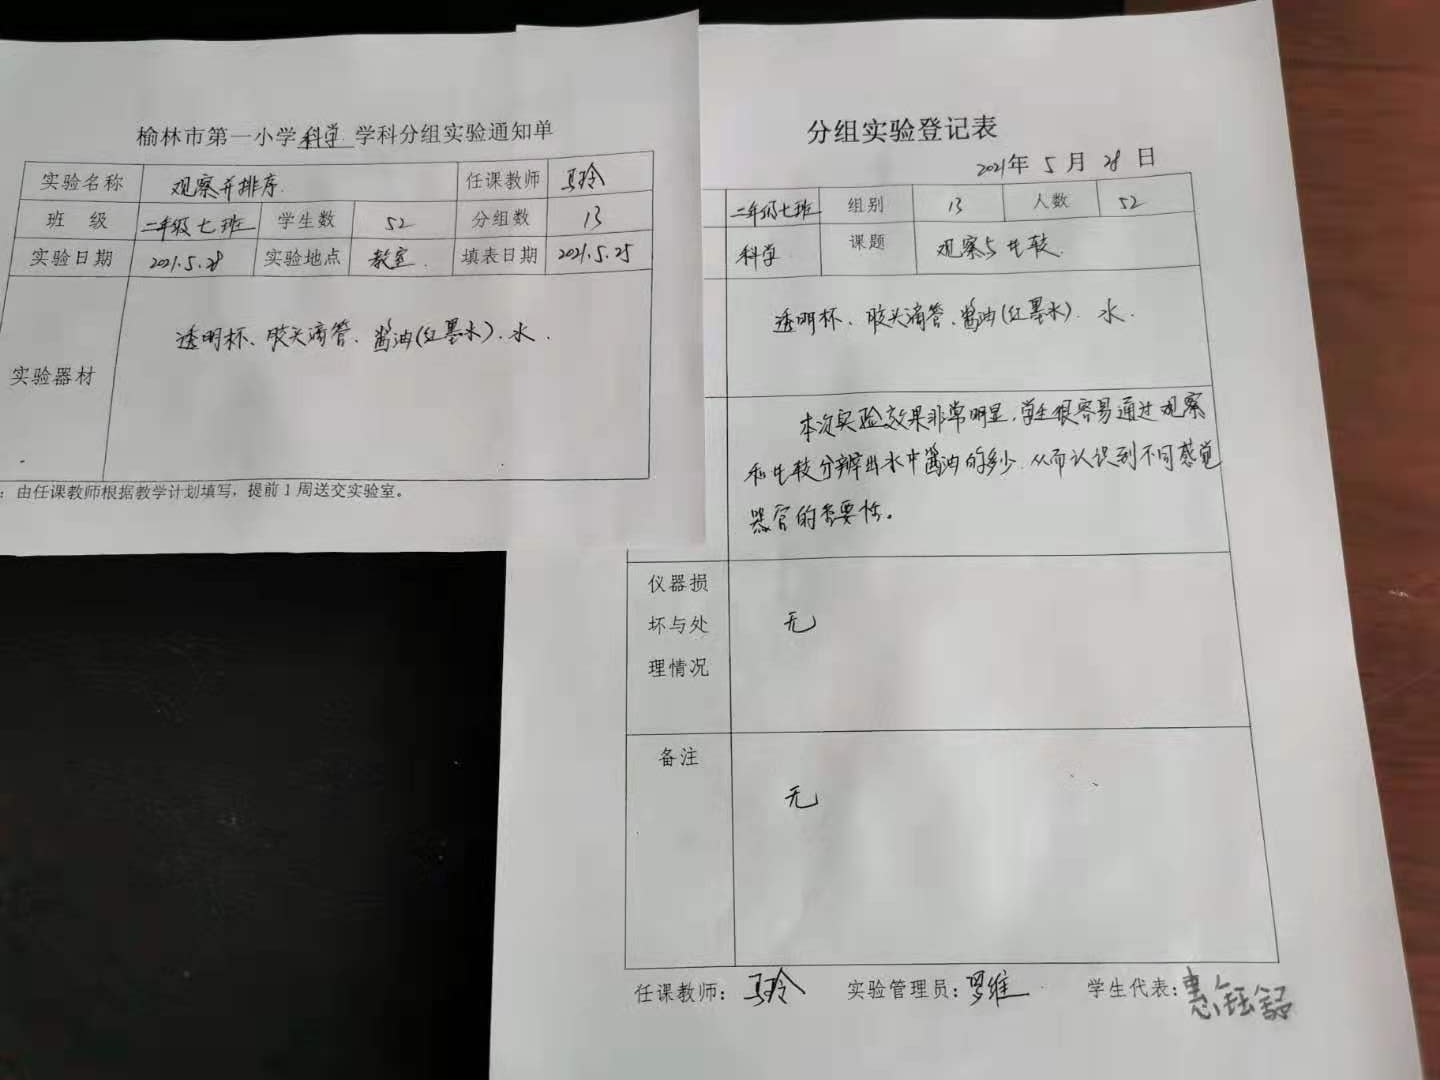 榆林市第一小学科学学科分组实验通知单
实验名称 观察并排序. 任课教师 马玲
班 级 二年级七班 学生数 52 分组数 13
实验日期 2021.5.28 实验地点 教室. 填表日期 2021.5.25
实验器材 透明杯、胶头滴管、酱油(红墨水).水.
：由任课教师根据教学计划填写，提前1周送交实验室。
分组实验登记表
2021年 5 月 28 日
二年级七班 组别 13 人数 52
科学 课题 观察与比较.
透明杯、胶头滴管、酱油(红墨水). 水.
本次实验效果非常明显,学生很容易通过观察
和比较分辨出水中酱油的多少.从而认识到不同感觉
器官的重要性。
仪器损
坏与处
理情况
无
备注
无
任课教师：马玲 实验管理员：罗维 学生代表：惠钰